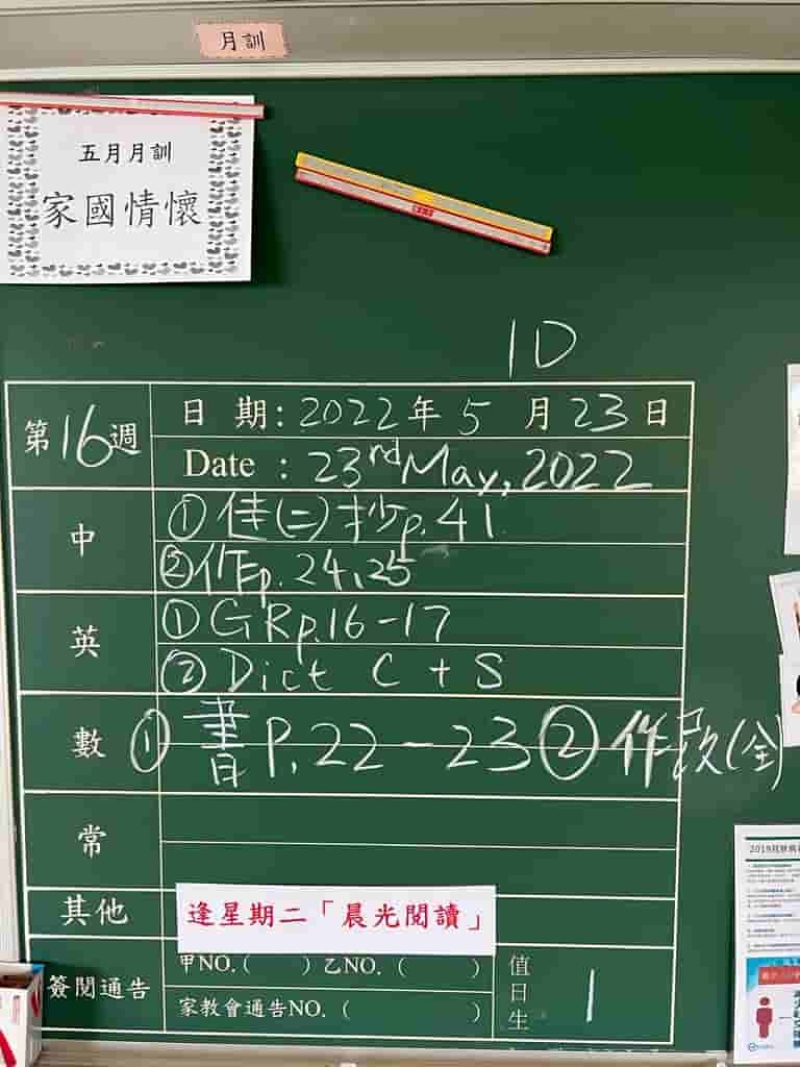 月訓
五月月訓
家國情懷
1D
第16週
日 期: 2022年 5 月 23 日
Date : 23rd May, 2022
中
① 佳(二)抄p.41
② 作p.24,25
英
① GR p.16-17
② Dict C + S
數
① 書P.22-23 ② 作改(全)
常
其他
逢星期二「晨光閱讀」
簽閱通告
甲NO.( ) 乙NO. ( )
家教會通告NO. ( )
值日生
1